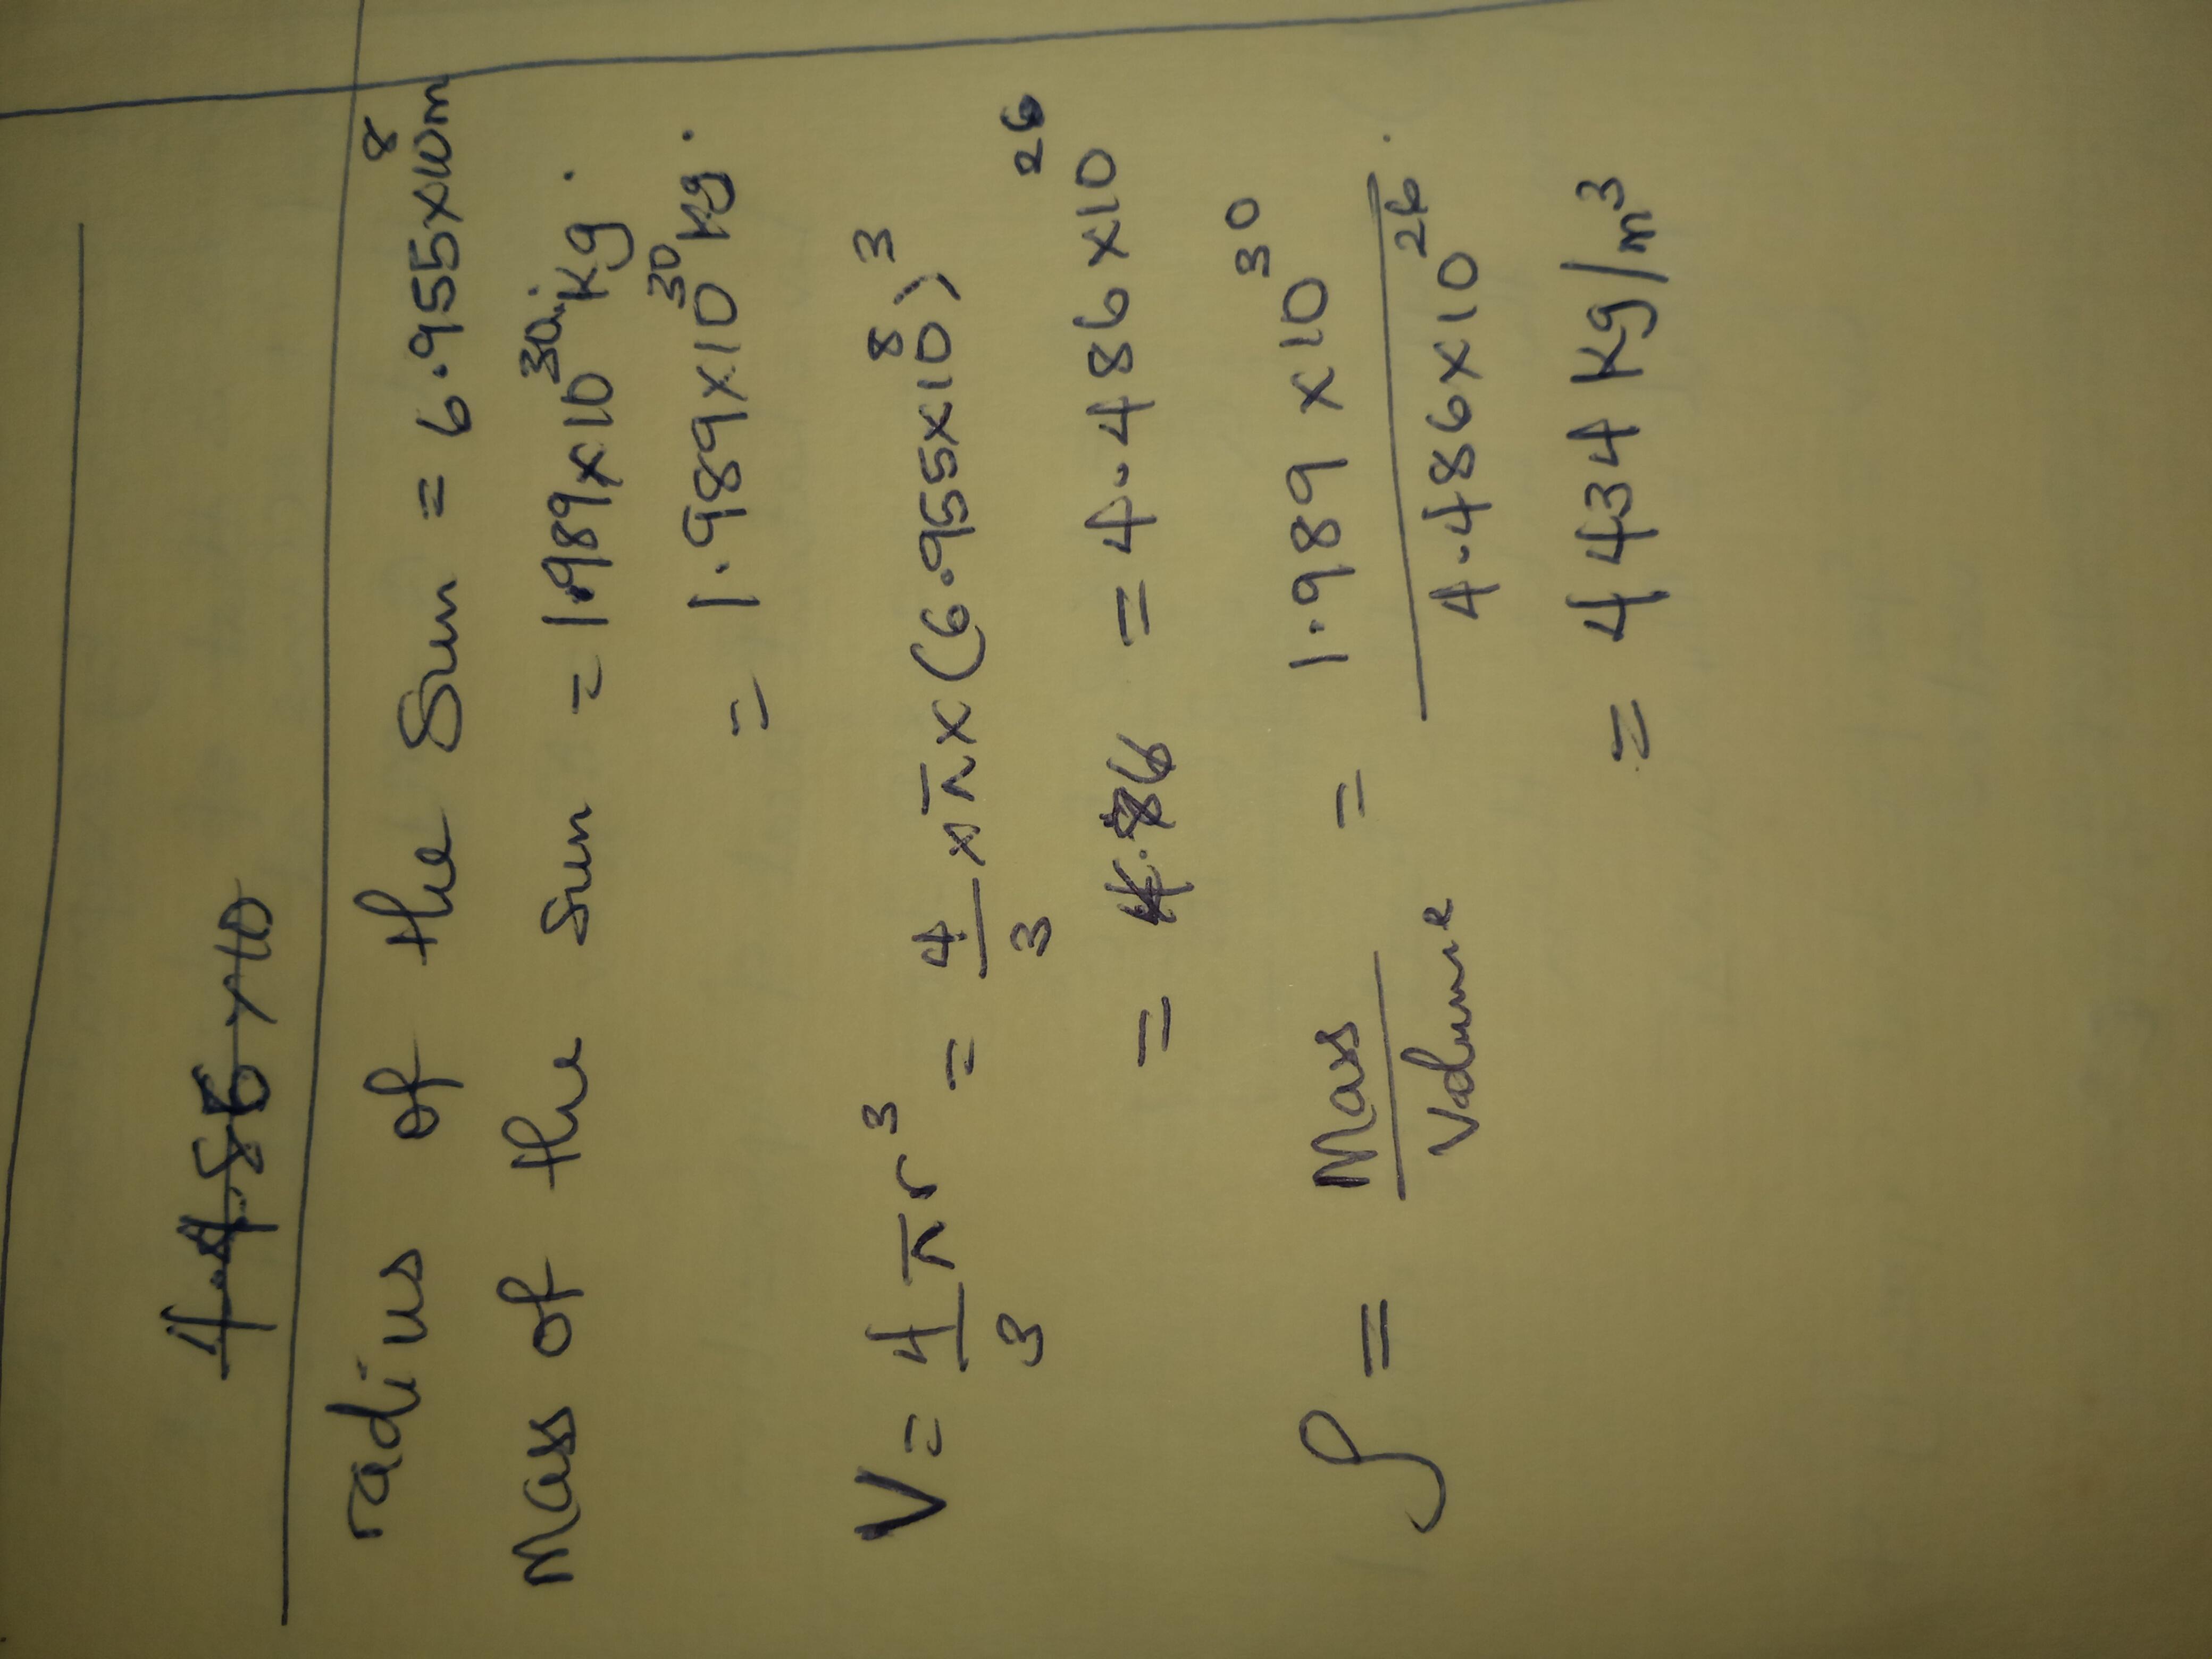 4.4856×10
radius of the Sun = 6.955×10⁸m
Mass of the Sun = 1.989×10³⁰kg.
= 1.989×10³⁰kg.
V = 4/3 πr³ = 4/3 × π × (6.955×10⁸)³
= 4.86 = 4.486×10²⁶
ρ = Mass/Volume = 1.989×10³⁰/4.486×10²⁶.
= 4434 Kg/m³